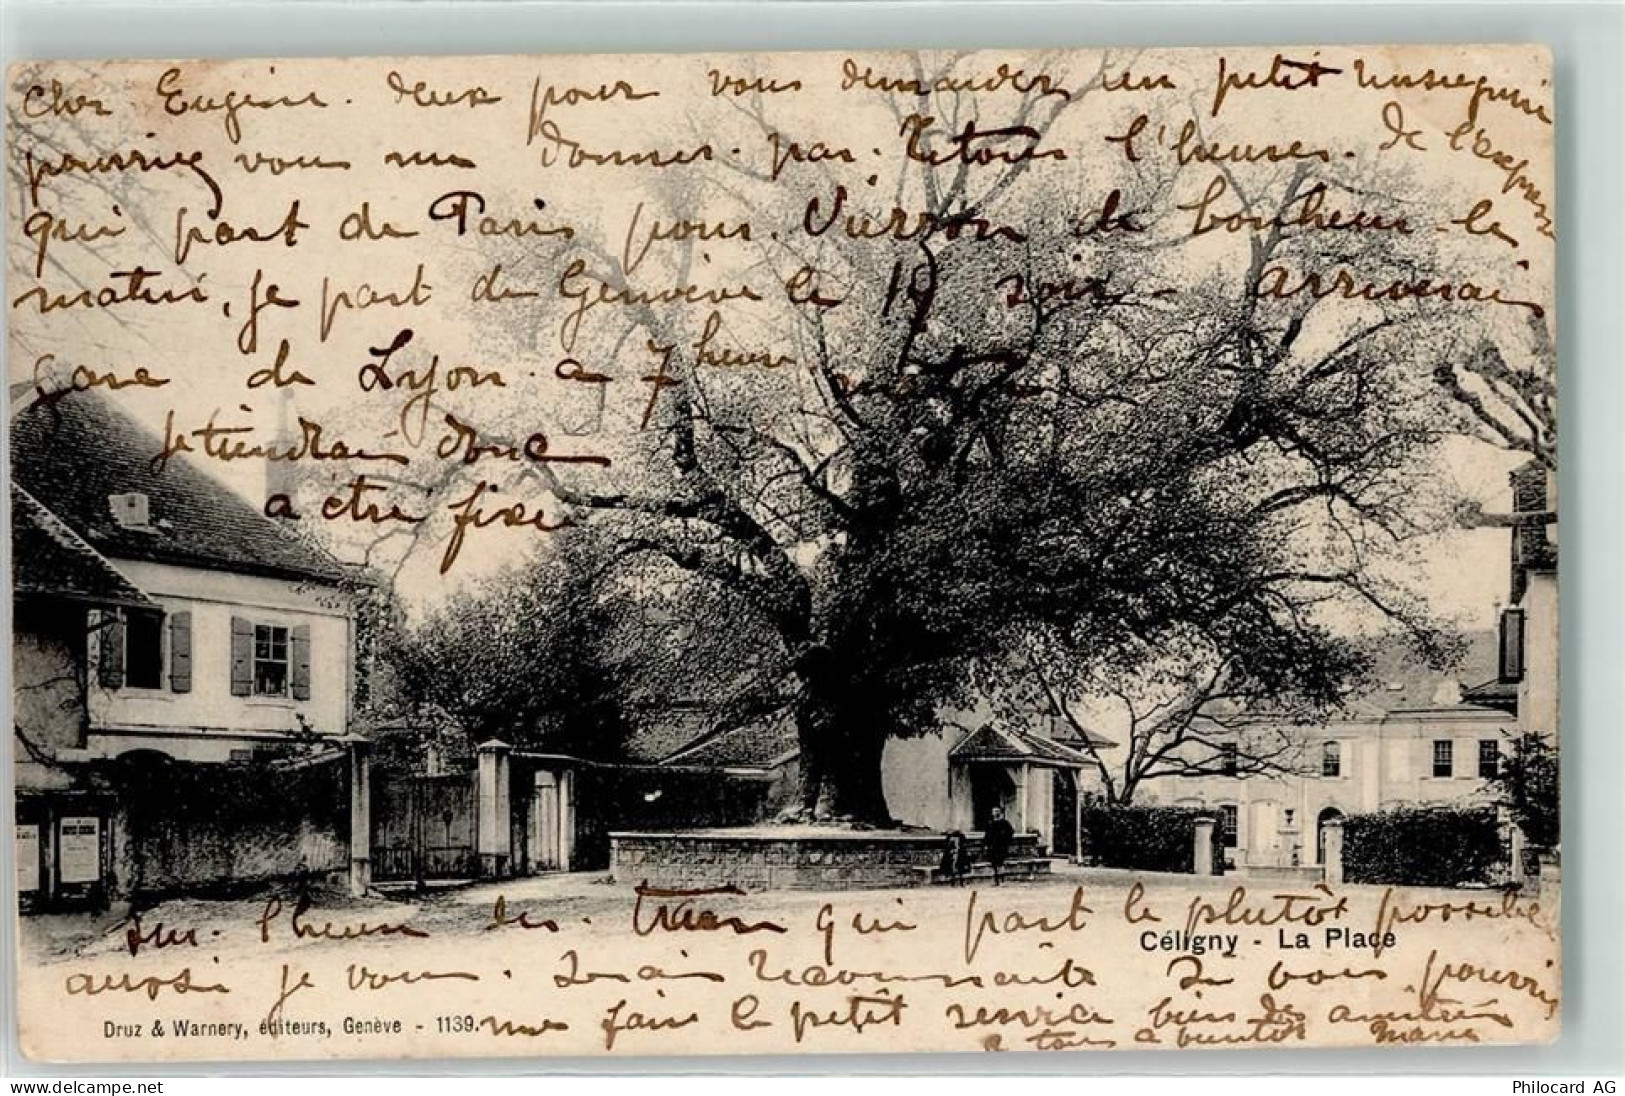 cher Eugène. deux pour vous demander un petit
pourriez vous me donner. par. Retour l'heures. de l'express
qui part de Paris pour. Vierzon de bonheur le
matin, je part de Genève le 19 soir - arriverai
gare de Lyon. a 7 heure
je tiendrai donc
a etre fixe
sur. l'heure des. train qui part le plutôt possible
Céligny - La Place
aussi je vous. serai reconnaite si vous pourriez
Druz & Warnery, éditeurs, Genève - 1139.
me faire le petit service bien des amitiés
a tous a bientôt Marie
Philocard AG